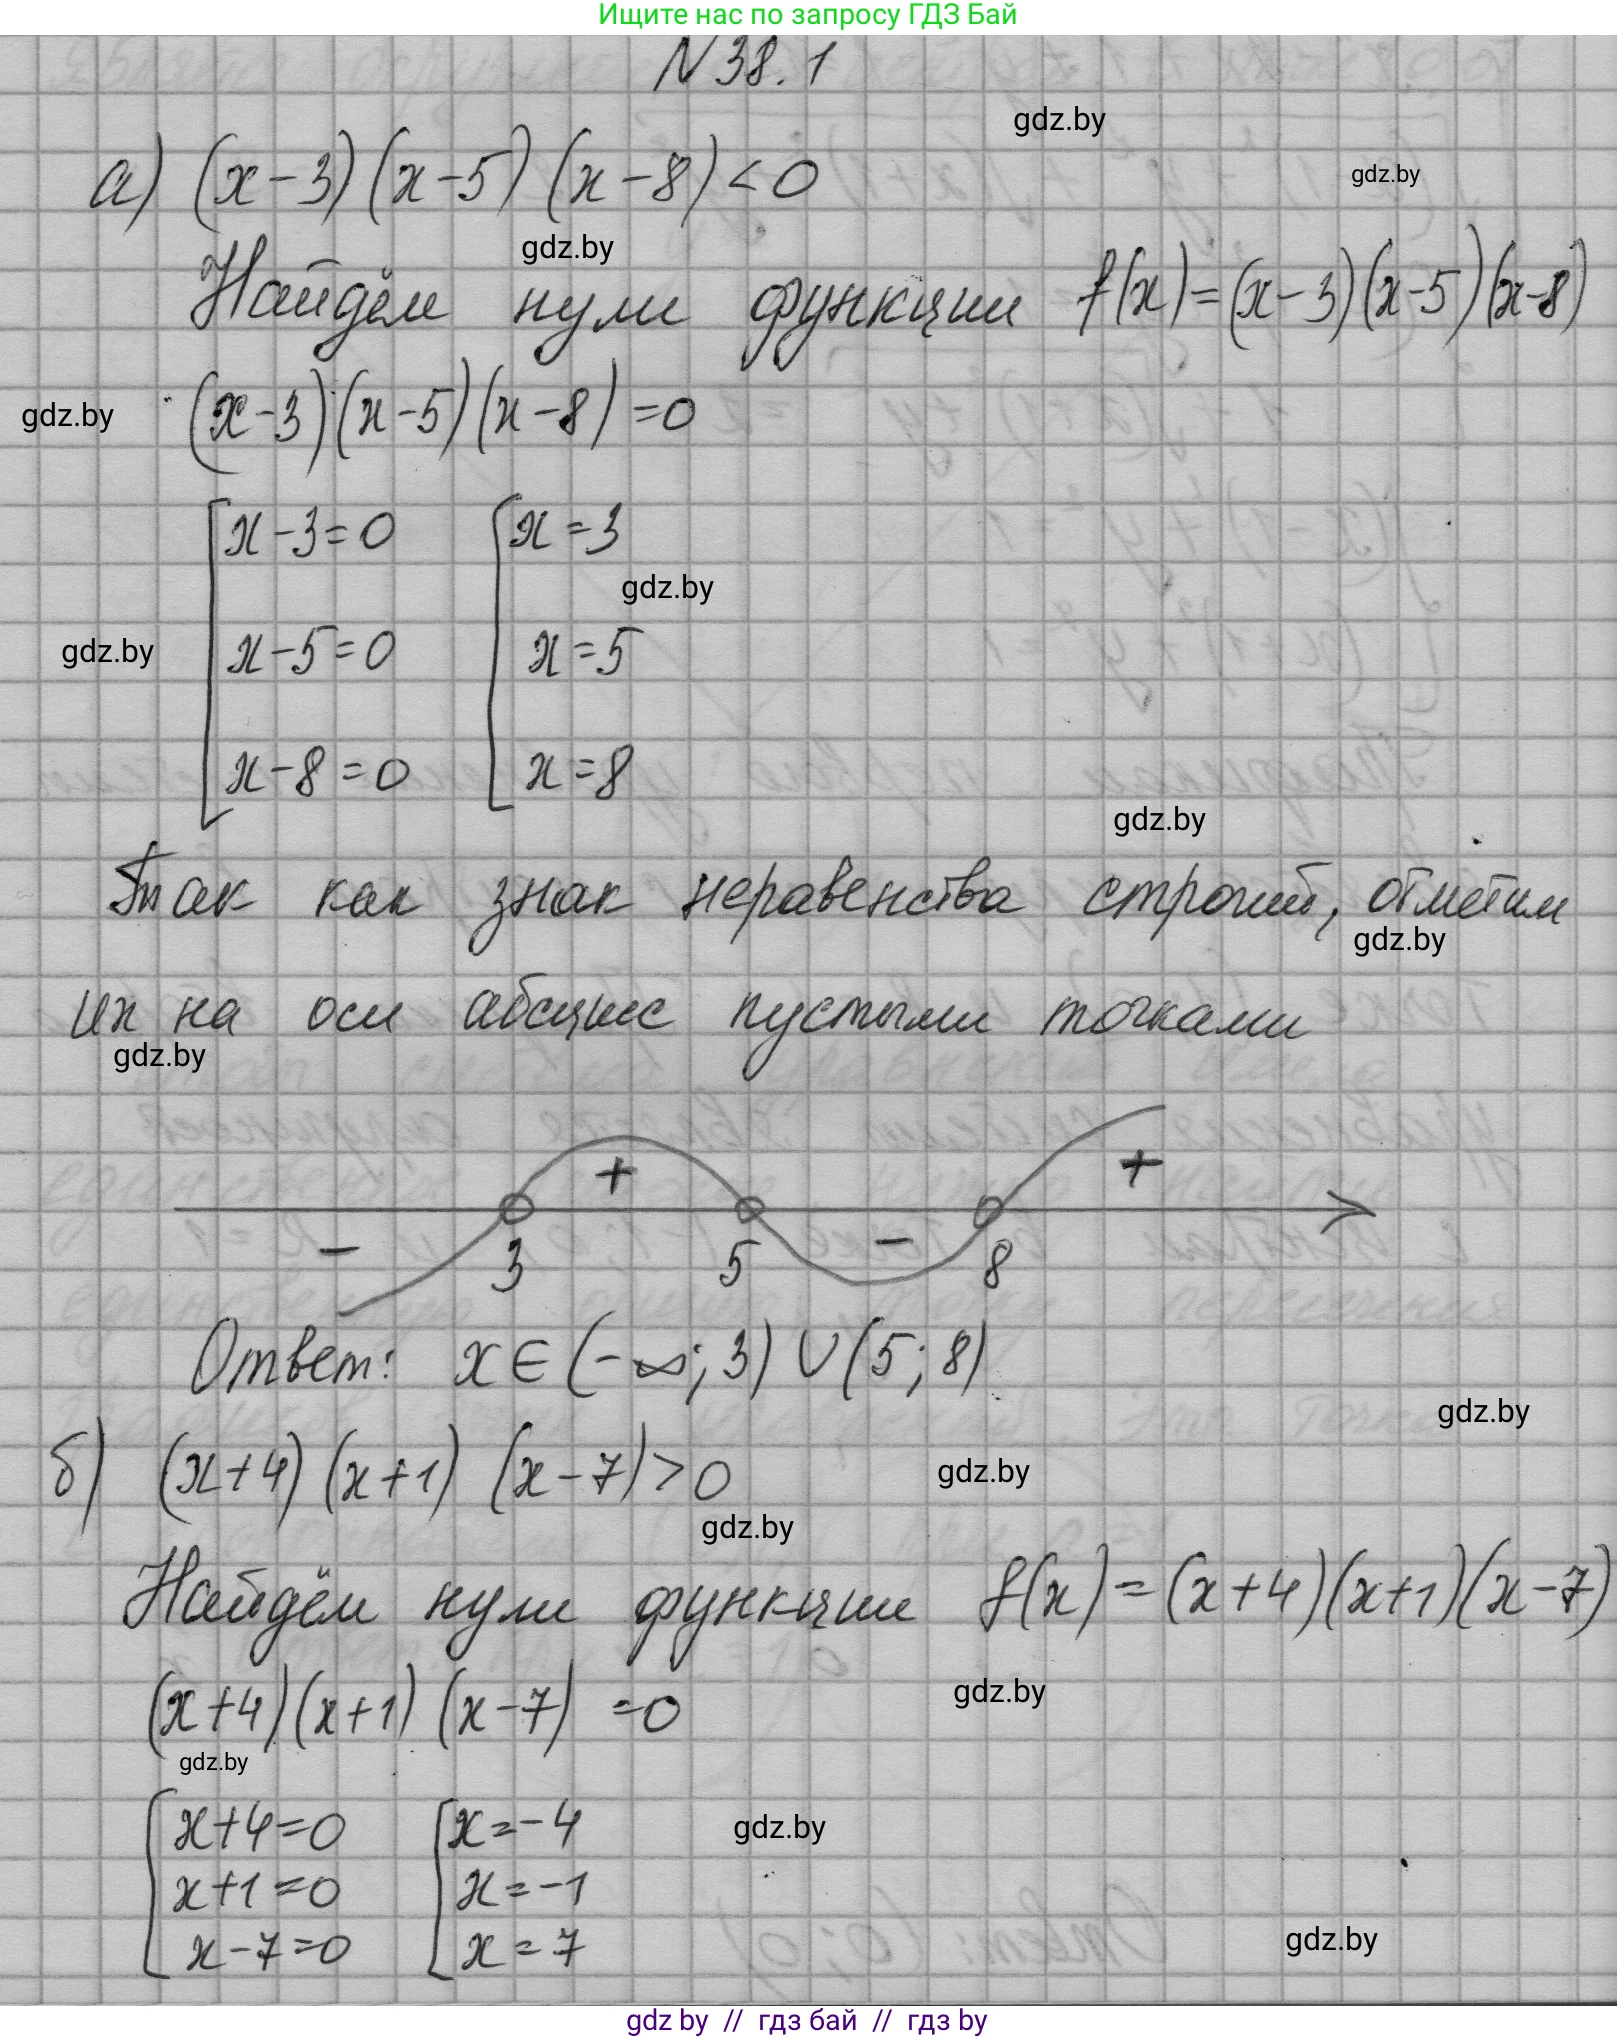 Ищите нас по запросу ГДЗ Бай
N 38.1
gdz.by
а) (x-3)(x-5)(x-8)<0
gdz.by
gdz.by
Найдём нули функции f(x)=(x-3)(x-5)(x-8)
gdz.by
(x-3)(x-5)(x-8)=0
x-3=0 x=3
gdz.by
gdz.by
x-5=0 x=5
x-8=0 x=8
gdz.by
Так как знак неравенства строгий, отметим
gdz.by
их на оси абсцисс пустыми точками
gdz.by
+ +
- -
3 5 8
Ответ: x∈(-∞;3)∪(5;8)
gdz.by
б) (x+4)(x+1)(x-7)>0
gdz.by
gdz.by
Найдём нули функции f(x)=(x+4)(x+1)(x-7)
gdz.by
(x+4)(x+1)(x-7)=0
gdz.by
x+4=0 x=-4
gdz.by
x+1=0 x=-1
x-7=0 x=7
gdz.by
gdz by // гдз бай // гдз by